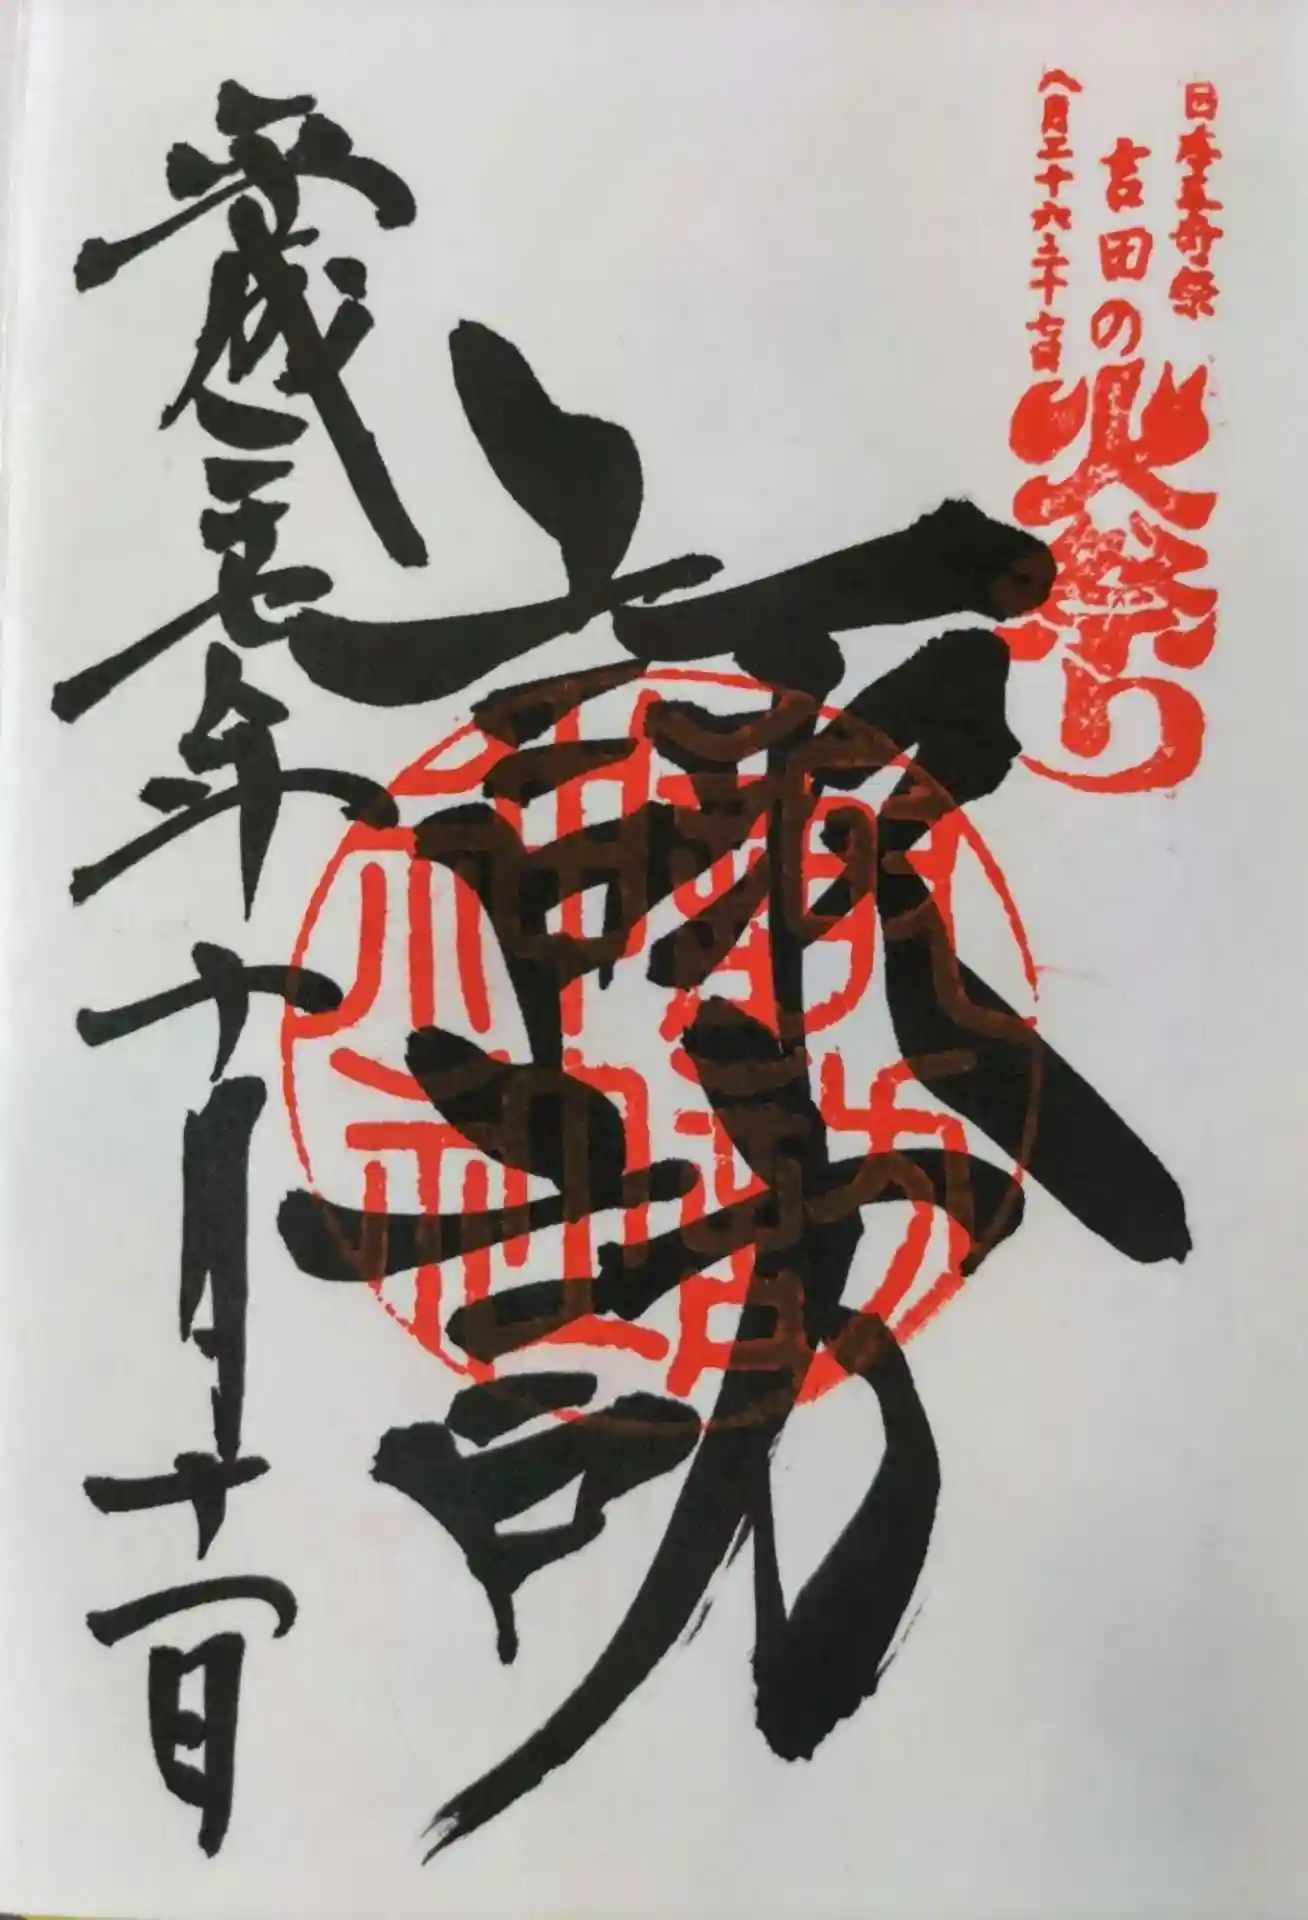 日本三奇祭
吉田の火祭り
八月二十六二十七日
諏訪
諏訪
神社
平成二七年十月十一日